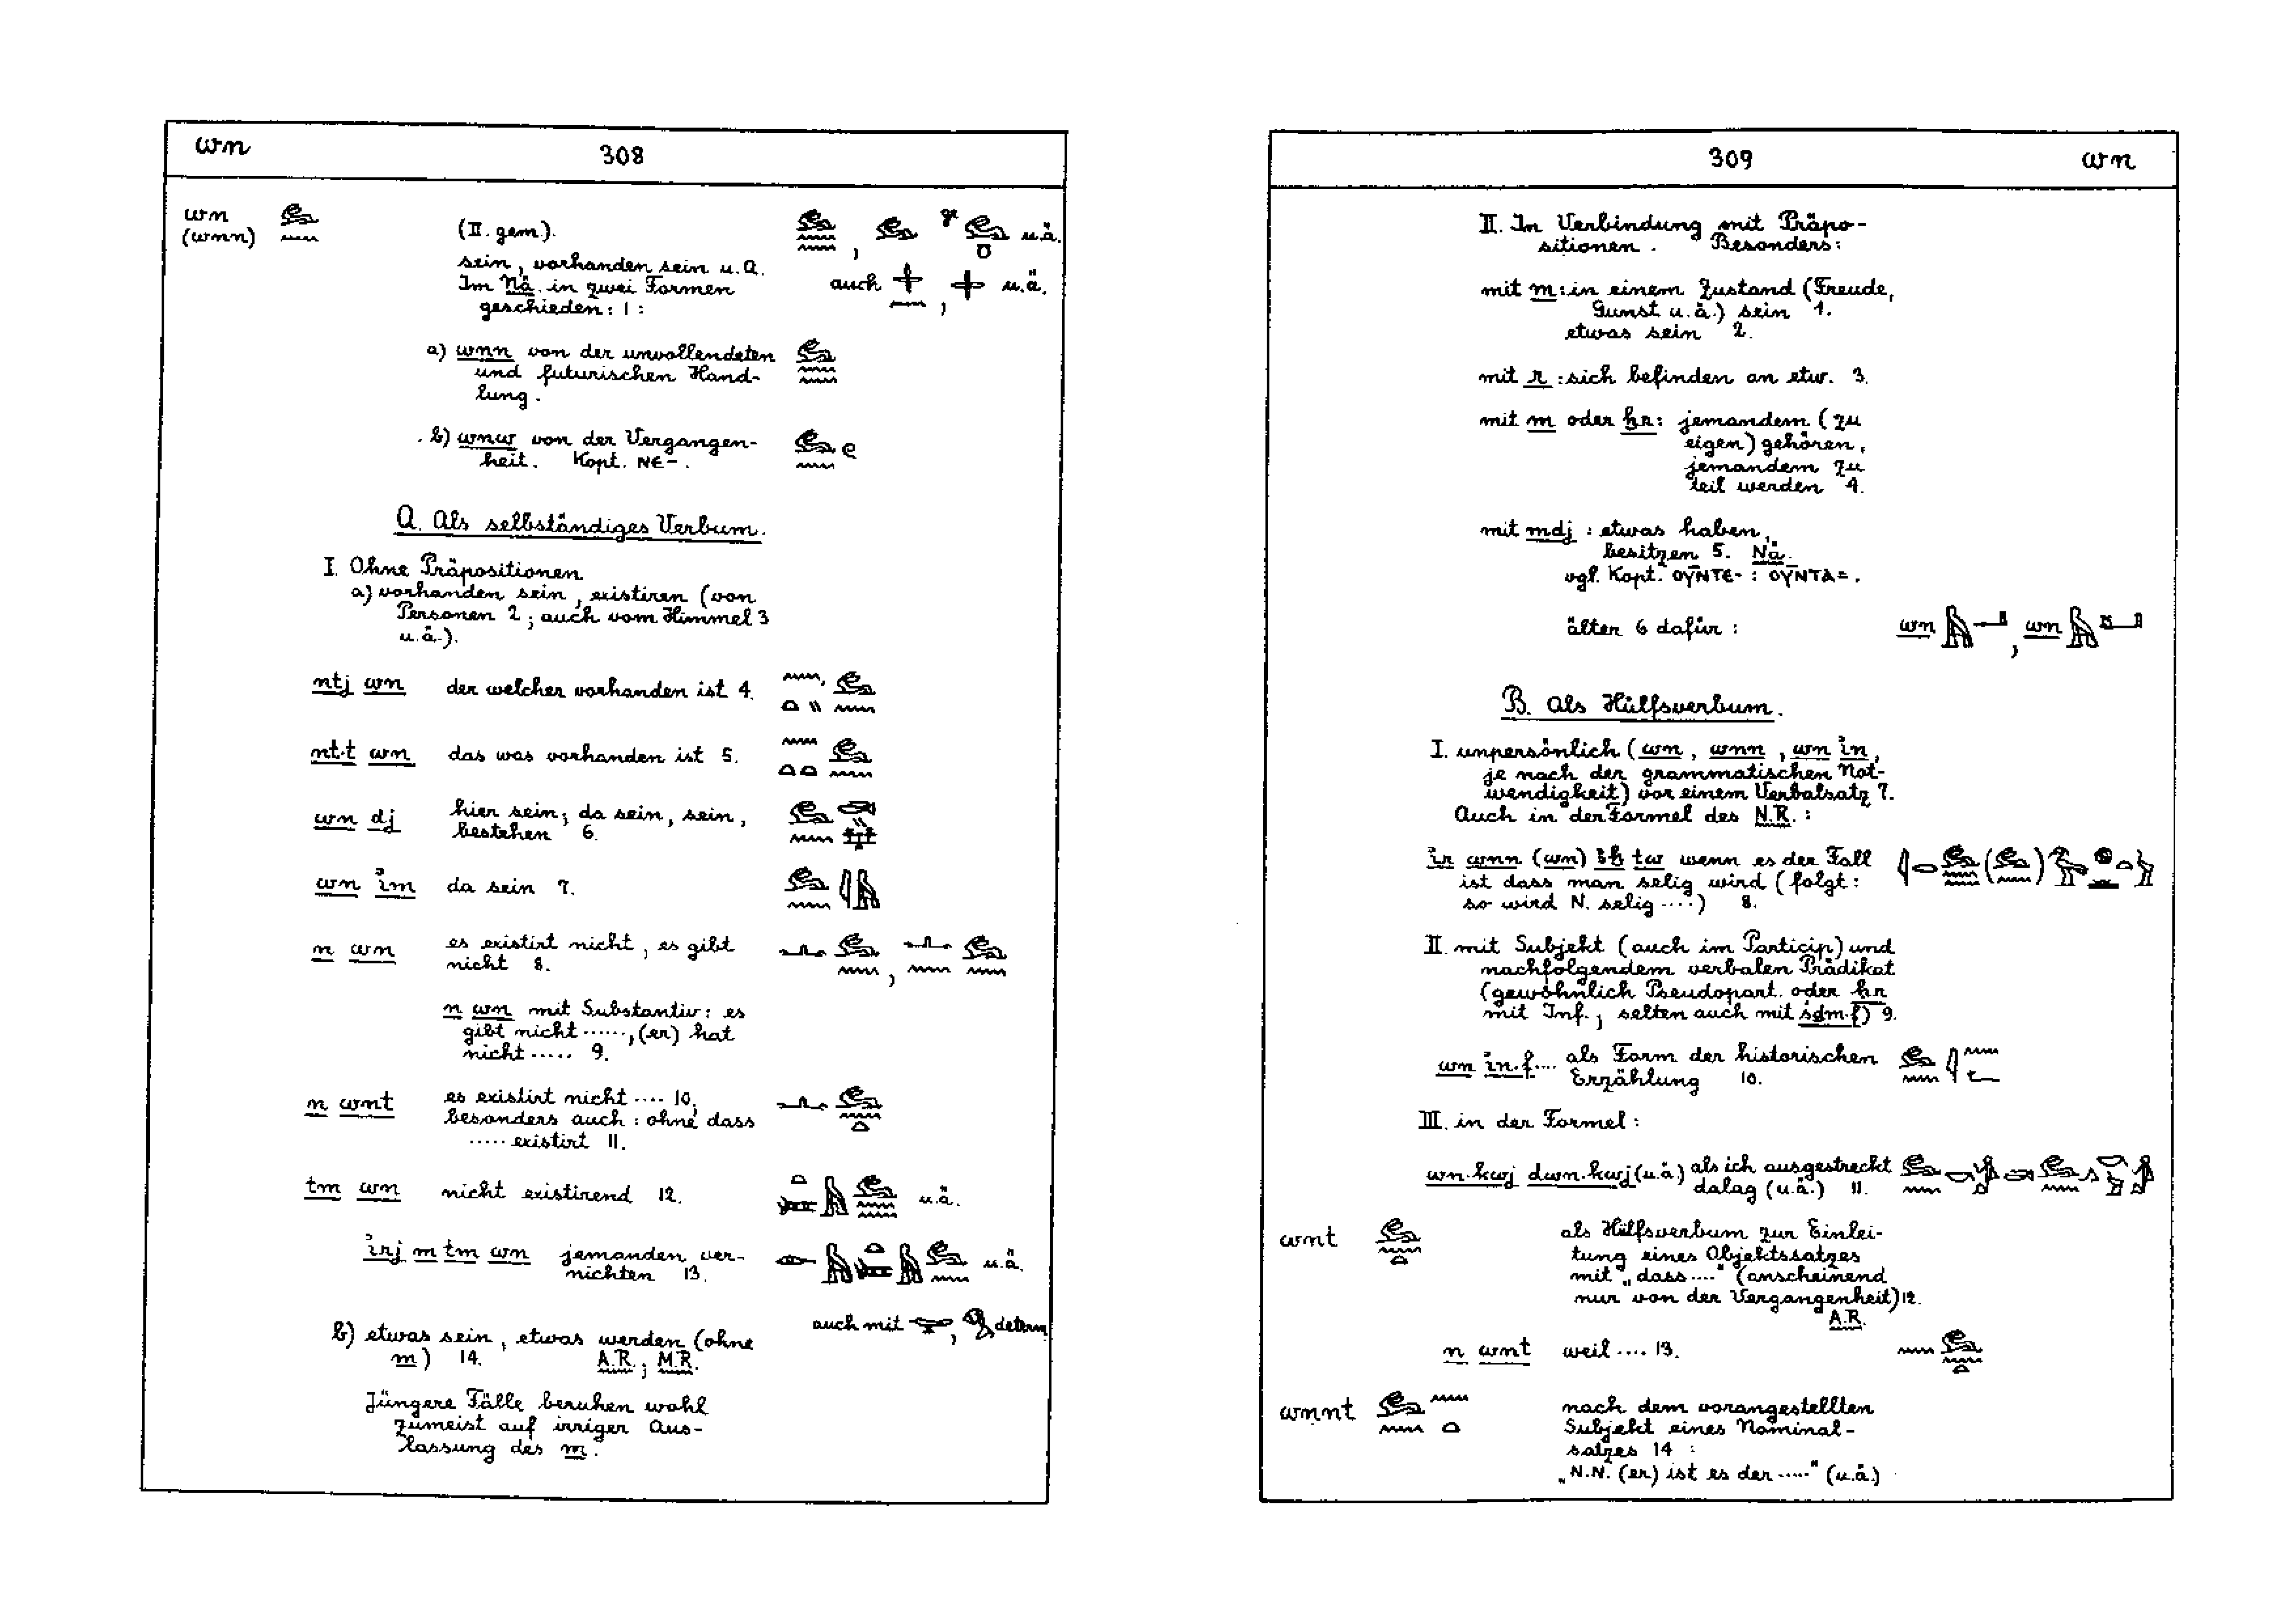 wn 308
wn
(wnn) (II. gem.).
u.ä.
sein, vorhanden sein u.a.
Im Nä. in zwei Formen
auch u.ä.
geschieden: 1:
a) wnn von der unvollendeten
und futurischen Hand-
lung.
b) wnw von der Vergangen-
heit. Kopt. ⲚⲈ-.
A. Als selbständiges Verbum.
I. Ohne Präpositionen
a) vorhanden sein, existiren (von
Personen 2; auch vom Himmel 3
u.ä.).
ntj wn der welcher vorhanden ist 4.
nt·t wn das was vorhanden ist 5.
wn dj hier sein; da sein, sein,
bestehen 6.
wn im da sein 7.
n wn es existirt nicht, es gibt
nicht 8.
n wn mit Substantiv: es
gibt nicht ······, (er) hat
nicht ····· 9.
n wnt es existirt nicht ···· 10,
besonders auch: ohne dass
····· existirt 11.
tm wn nicht existirend 12. u.ä.
irj m tm wn jemanden ver-
nichten 13. u.ä.
auch mit , determ.
b) etwas sein, etwas werden (ohne
m) 14. A.R.; M.R.
Jüngere Fälle beruhen wohl
zumeist auf irriger Aus-
lassung des m.
309 wn
II. In Verbindung mit Präpo-
sitionen. Besonders:
mit m: in einem Zustand (Freude,
Gunst u.ä.) sein 1.
etwas sein 2.
mit r: sich befinden an etw. 3.
mit m oder ḫr: jemandem (zu
eigen) gehören,
jemandem zu
teil werden 4.
mit mdj: etwas haben,
besitzen 5. Nä.
vgl. Kopt. ⲞⲨⲚⲦⲈ-: ⲞⲨⲚⲦⲀ=.
älter 6 dafür: wn , wn
B. Als Hülfsverbum.
I. unpersönlich (wn, wnn, wn in,
je nach der grammatischen Not-
wendigkeit) vor einem Verbalsatz 7.
Auch in der Formel des N.R.:
ir wnn (wn) ꜣḫ tw wenn es der Fall
ist dass man selig wird (folgt:
so wird N. selig ····) 8.
II. mit Subjekt (auch im Particip) und
nachfolgendem verbalen Prädikat
(gewöhnlich Pseudopart. oder ḥr
mit Inf.; selten auch mit śḏm·f) 9.
wn in·f···· als Form der historischen
Erzählung 10.
III. in der Formel:
wn·kwj dwn·kwj (u.ä.) als ich ausgestreckt
dalag (u.ä.) 11.
wnt als Hülfsverbum zur Einlei-
tung eines Objektssatzes
mit „dass····" (anscheinend
nur von der Vergangenheit) 12.
A.R.
n wnt weil ···· 13.
wnnt nach dem vorangestellten
Subjekt eines Nominal-
satzes 14:
„N.N. (er) ist es der ·····" (u.ä.)